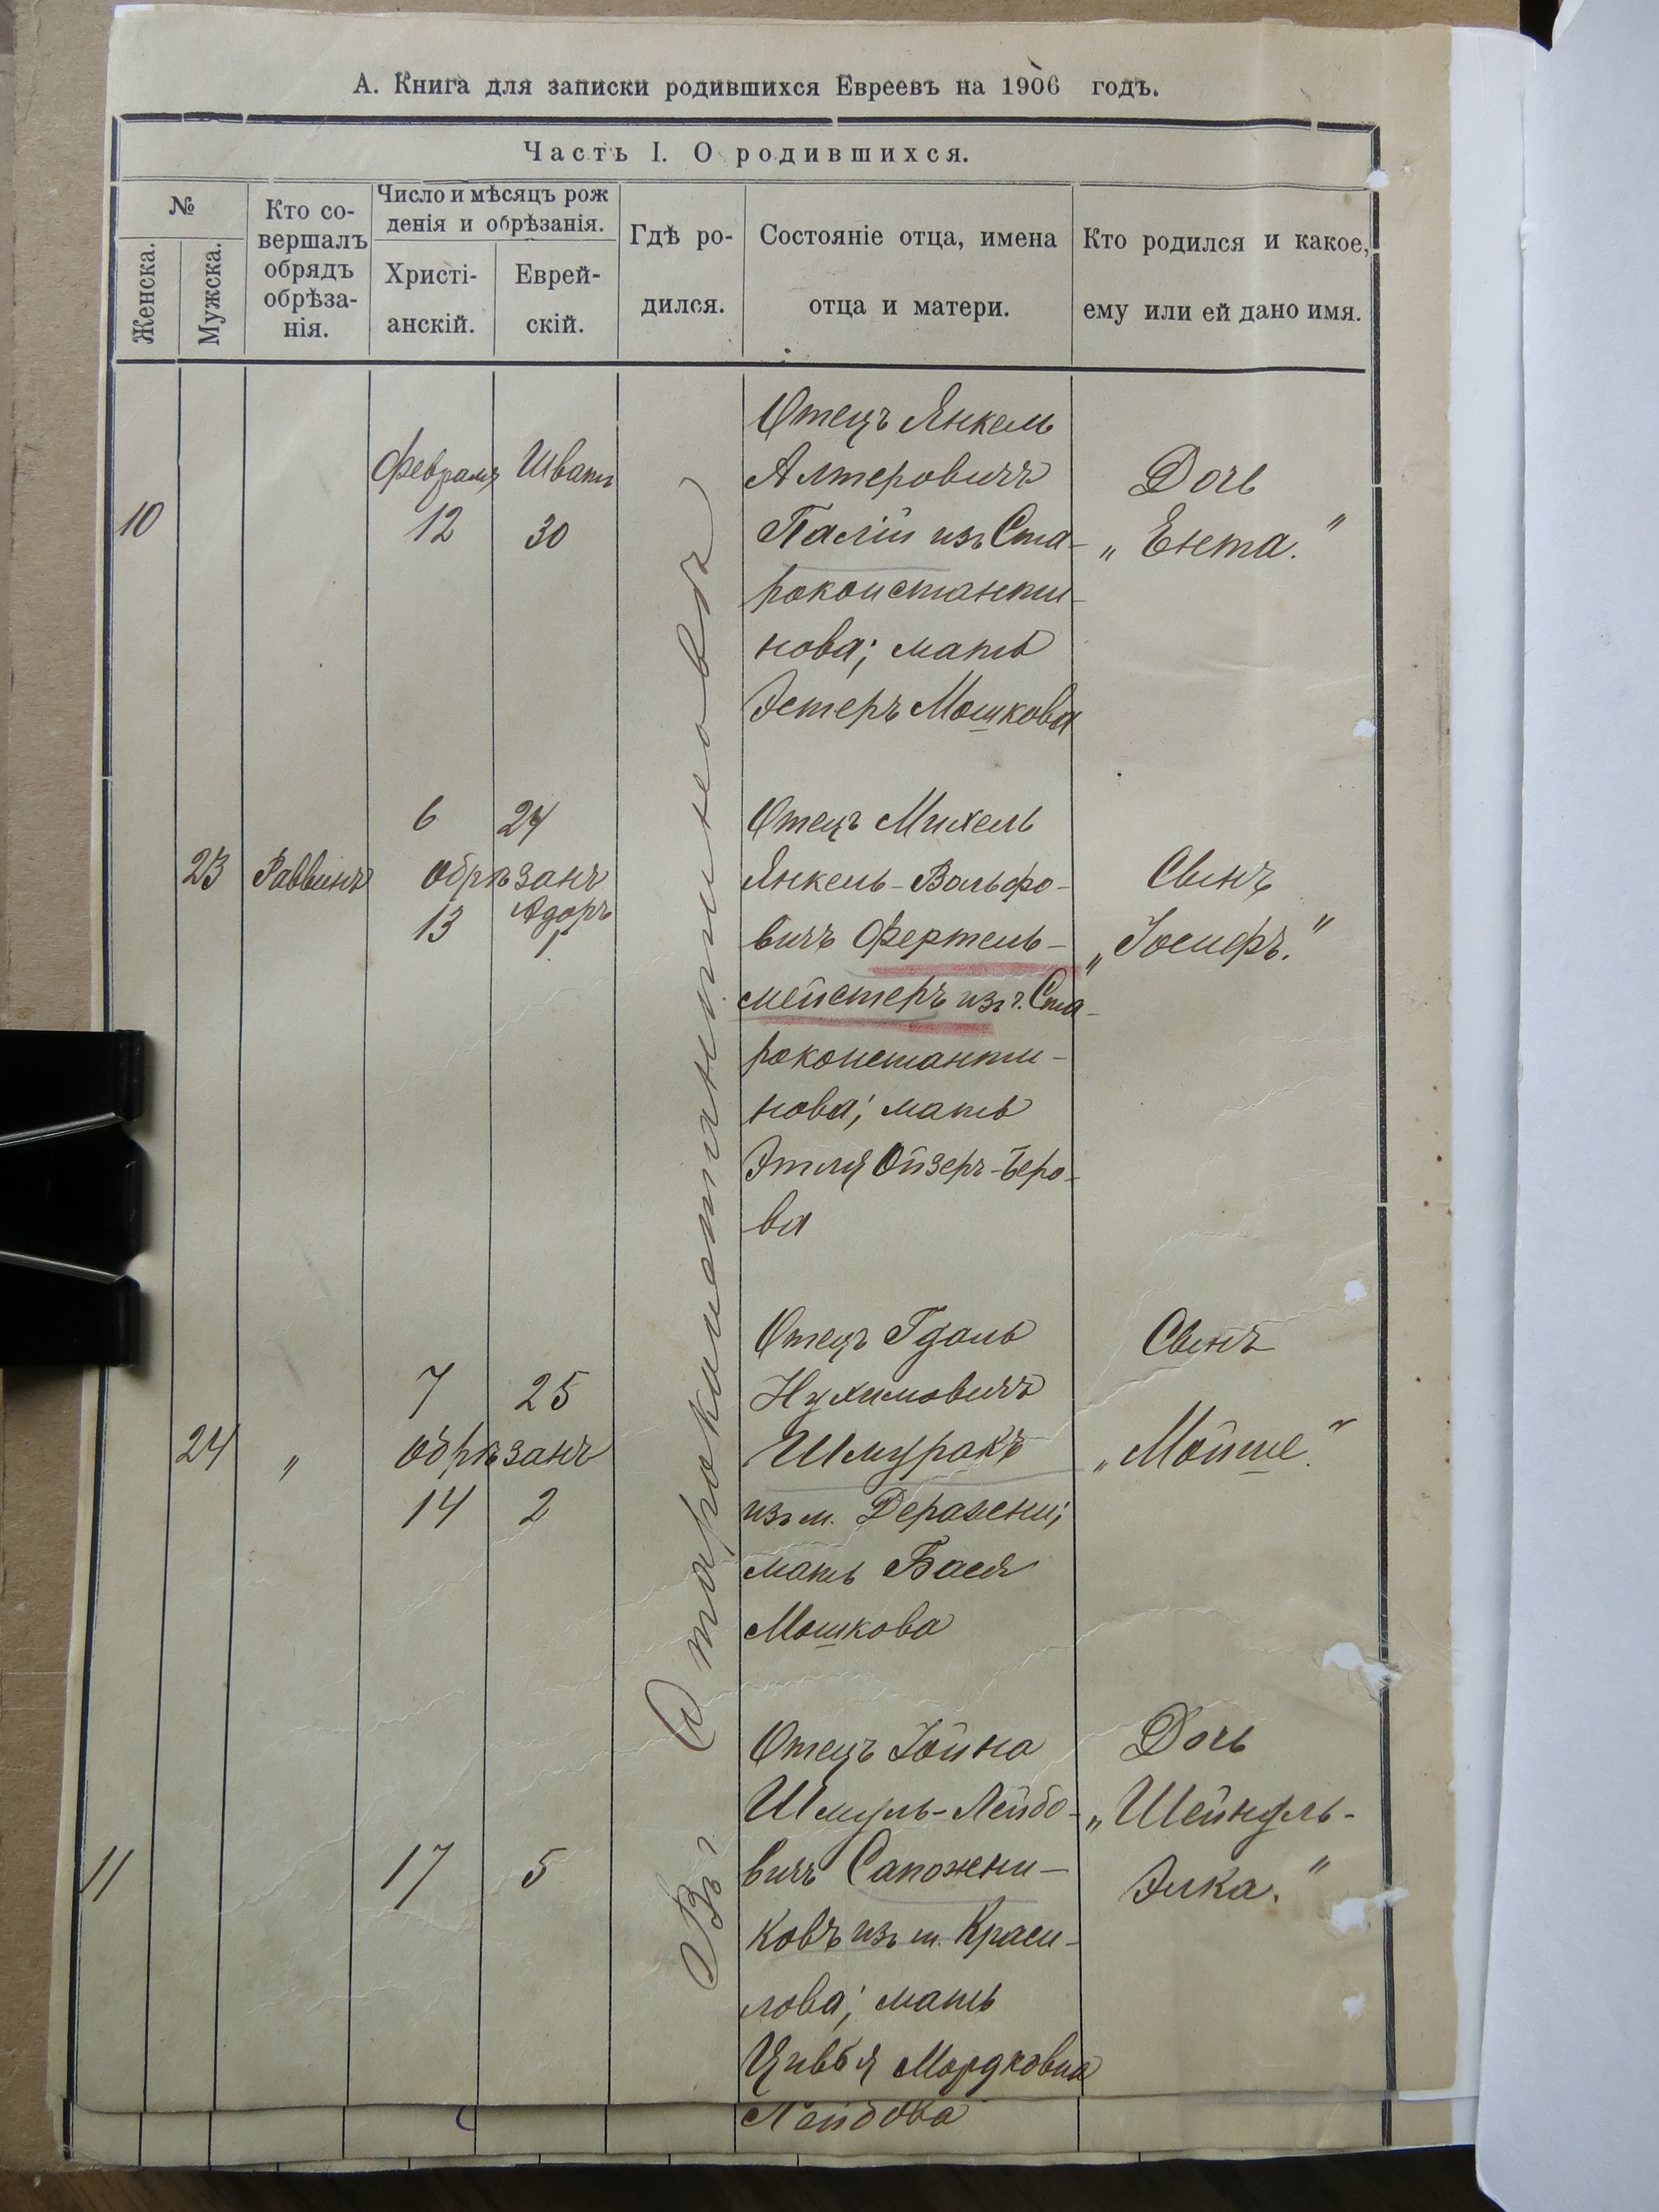 А. Книга для записки родившихся Евреевъ на 1906 годъ.
Часть I. О родившихся.
№
Женска.
Мужска.
Кто со-
вершалъ
обрядъ
обрѣза-
нія.
Число и мѣсяцъ рож
денія и обрѣзанія.
Христі-
анскій.
Еврей-
скій.
Гдѣ ро-
дился.
Состояніе отца, имена
отца и матери.
Кто родился и какое,
ему или ей дано имя.
Въ г. Староконстантиновѣ
10
Февраля
12
Шватъ
30
Отецъ Янкель
Алтеровичъ
Палій изъ Ста-
роконстанти-
нова; мать
Эстеръ Мошкова
Дочь
„Ента."
23
Раввинъ
6 24
обрѣзанъ
13 Адоръ
1
Отецъ Михель
Янкель-Вольфо-
вичъ Фертель-
мейстеръ изъ г. Ста-
роконстанти-
нова; мать
Этля Ойзеръ-Беро-
ва
Сынъ
„Іосифъ."
24
„
7 25
обрѣзанъ
14 2
Отецъ Гдаль
Нухимовичъ
Шмуракъ
изъ м. Деражни;
мать Бася
Мошкова
Сынъ
„Мойше."
11
17 5
Отецъ Іойна
Шмуль-Лейбо-
вичъ Сапожни-
ковъ изъ м. Краси-
лова; мать
Цивья Мордковна
Лейбова
Дочь
„Шейндль-
Элка."